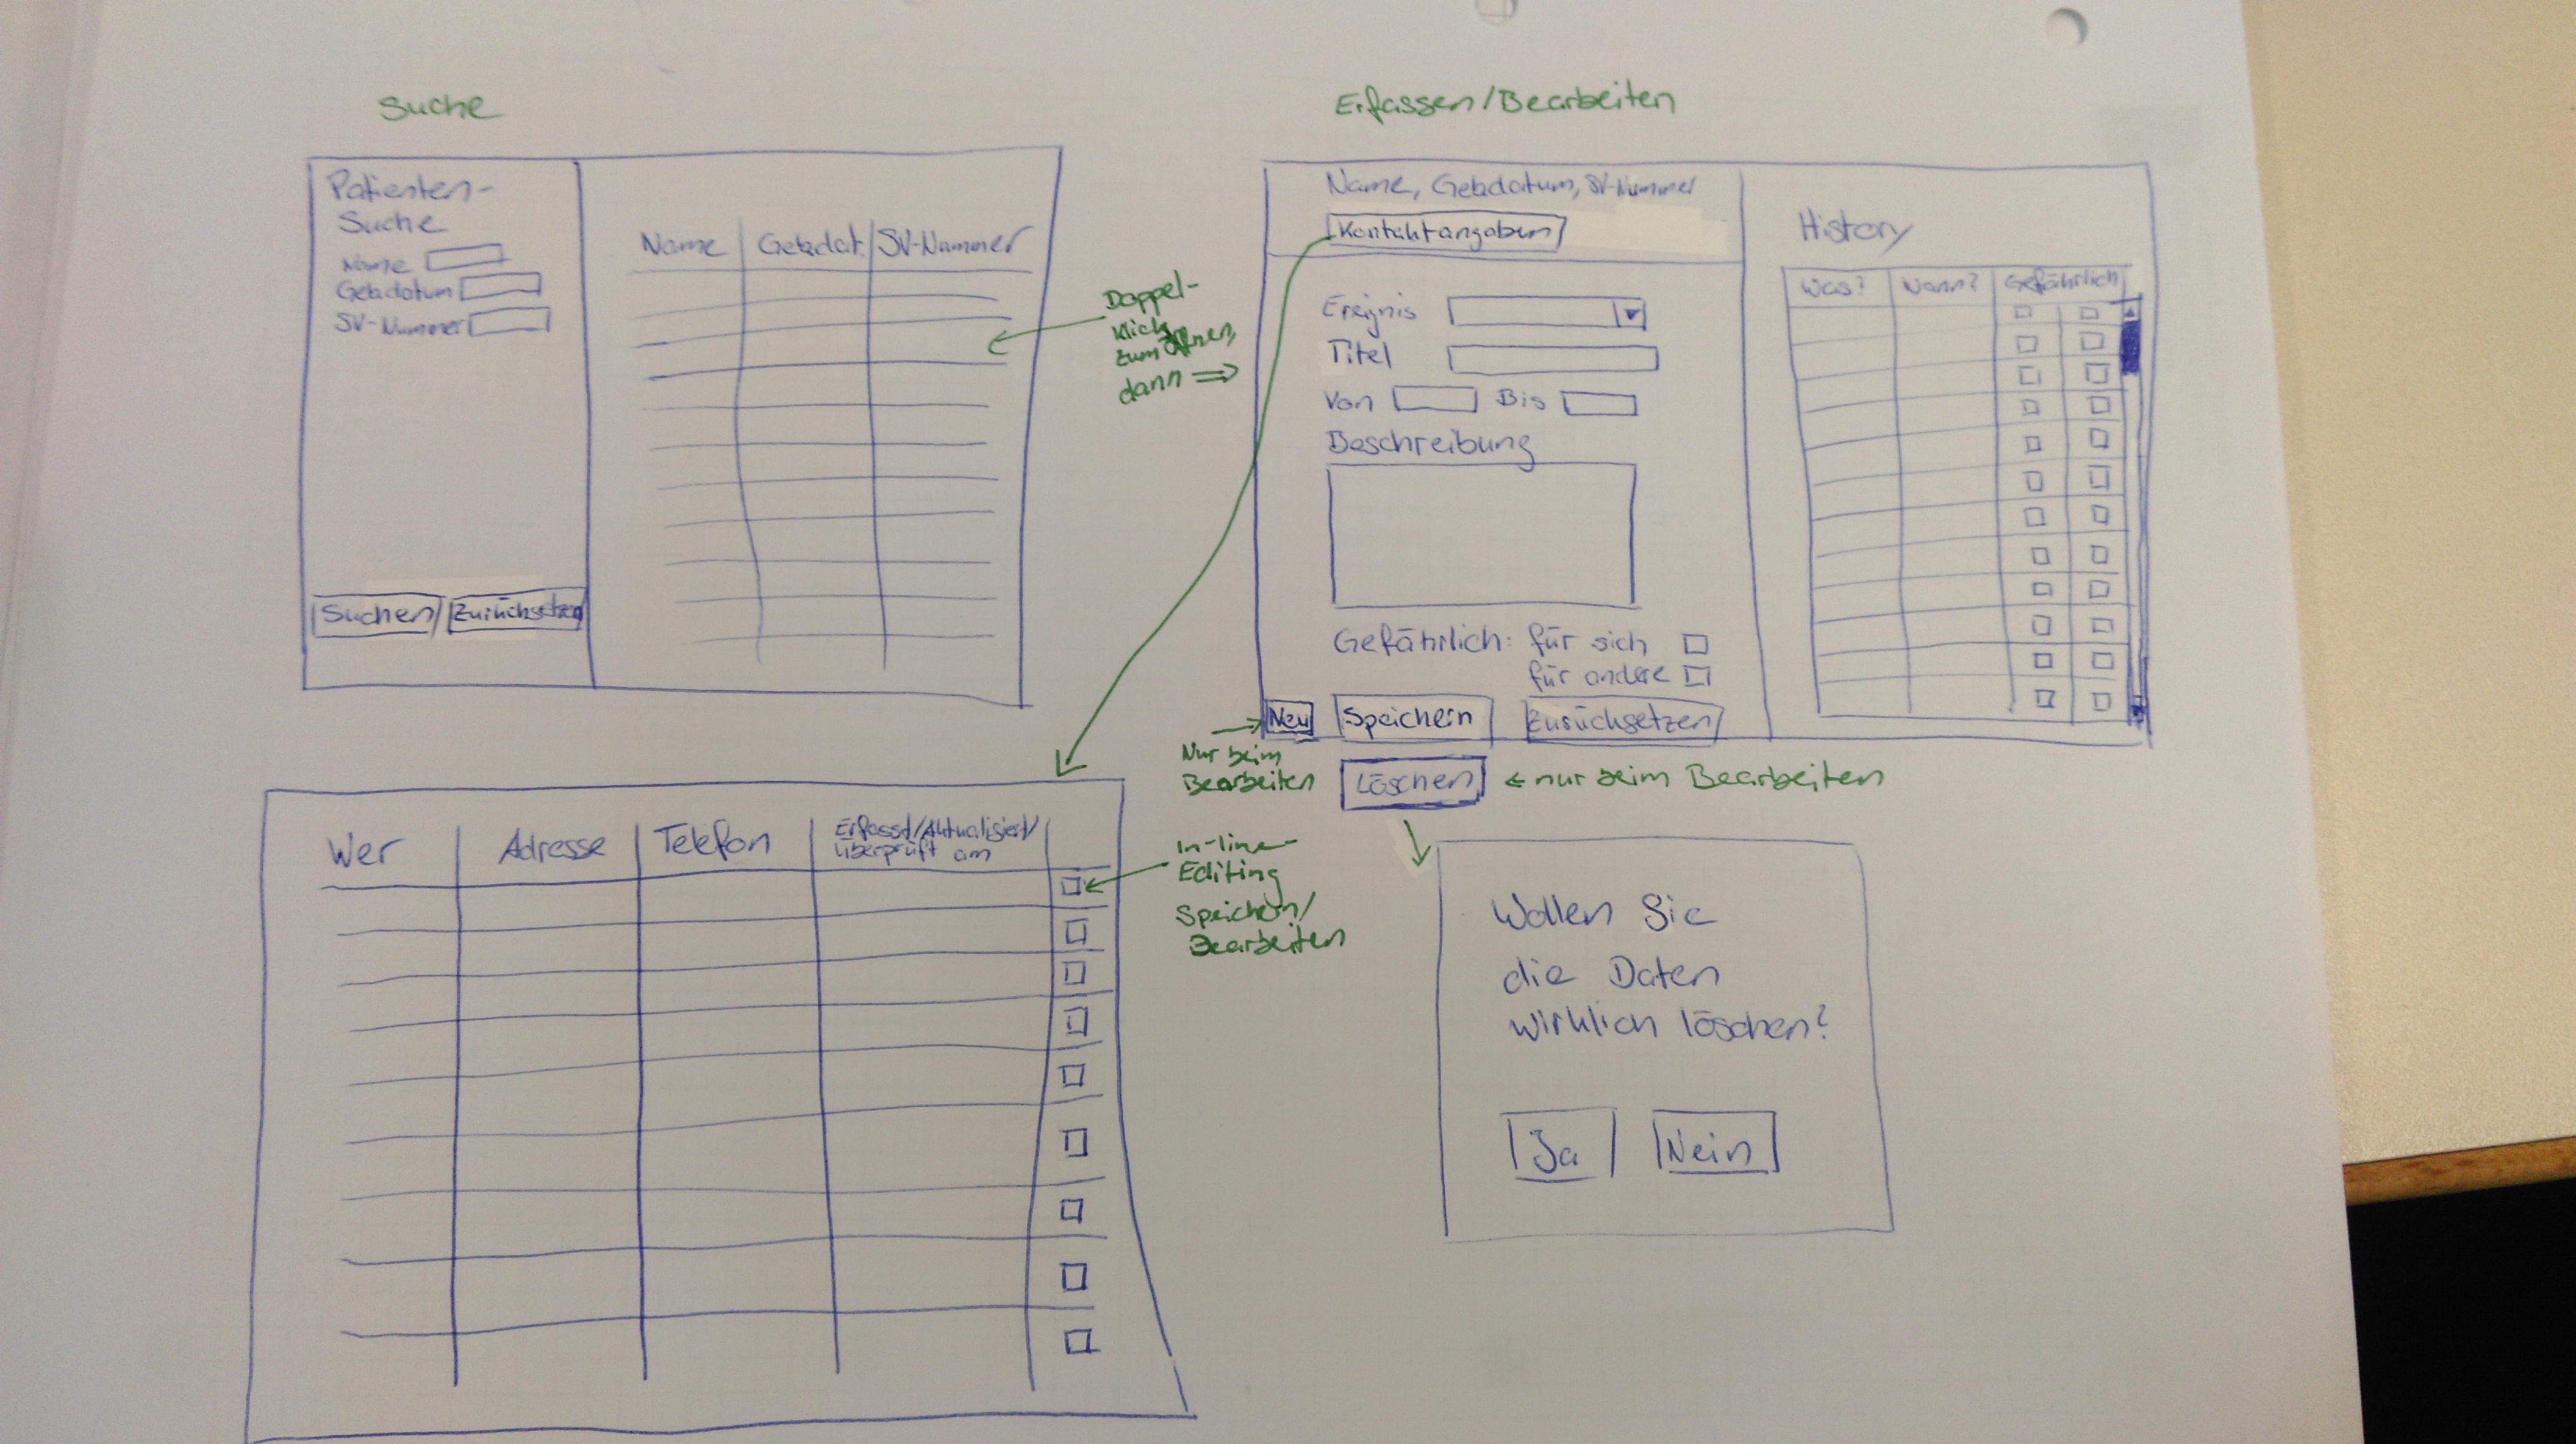 Suche
Patienten-
Suche
Name
Gebdatum
SV-Nummer
Suchen Zurücksetzen
Name Gebdat. SV-Nummer
Doppel-
klick
zum Öffnen,
dann ⇒
Erfassen/Bearbeiten
Name, Gebdatum, SV-Nummer
Kontaktangaben
Ereignis
Titel
Von Bis
Beschreibung
Gefährlich: für sich
für andere
Neu Speichern Zurücksetzen
Nur beim
Bearbeiten
Löschen ← nur beim Bearbeiten
History
Was? Wann? Gefährlich
Wer Adresse Telefon Erfasst/Aktualisiert/
überprüft am
In-line-
Editing
Speichern/
Bearbeiten
Wollen Sie
die Daten
wirklich löschen?
Ja Nein